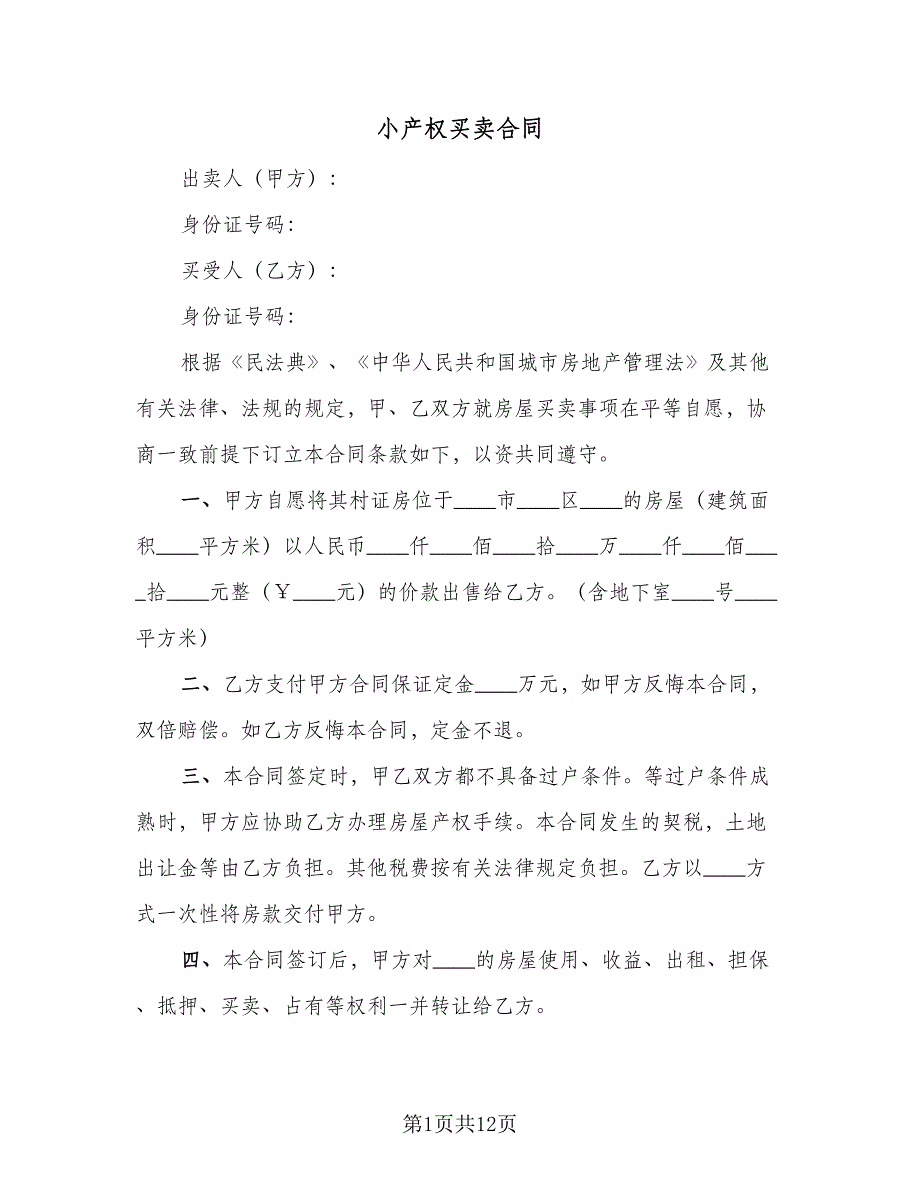 小产权买卖合同
出卖人（甲方）:
身份证号码:
买受人（乙方）:
身份证号码:
根据《民法典》、《中华人民共和国城市房地产管理法》及其他
有关法律、法规的规定，甲、乙双方就房屋买卖事项在平等自愿，协
商一致前提下订立本合同条款如下，以资共同遵守。
一、甲方自愿将其村证房位于____市____区____的房屋（建筑面
积____平方米）以人民币____仟____佰____拾____万____仟____佰___
_拾____元整（￥____元）的价款出售给乙方。（含地下室____号____
平方米）
二、乙方支付甲方合同保证定金____万元，如甲方反悔本合同，
双倍赔偿。如乙方反悔本合同，定金不退。
三、本合同签定时，甲乙双方都不具备过户条件。等过户条件成
熟时，甲方应协助乙方办理房屋产权手续。本合同发生的契税，土地
出让金等由乙方负担。其他税费按有关法律规定负担。乙方以____方
式一次性将房款交付甲方。
四、本合同签订后，甲方对____的房屋使用、收益、出租、担保
、抵押、买卖、占有等权利一并转让给乙方。
第1页共12页